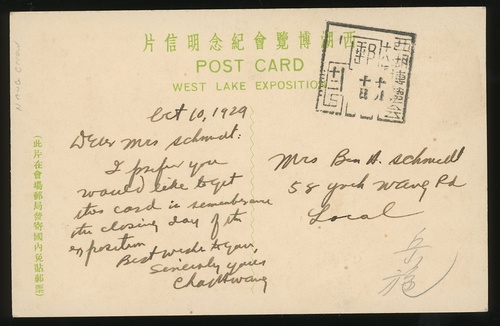 西湖博覽會紀念明信片
POST CARD
WEST LAKE EXPOSITION
西湖博覽會
郵
Oct 10, 1929
Dear Mrs Schmidt:
I prefer you
would like to get
this card is remembrance
the closing day of the
exposition
Best wishes to you,
Sincerely yours
Mrs Ben H. Schmidt
58 York Wang Rd
Local
(此片在會場郵局發寄國內免貼郵票)